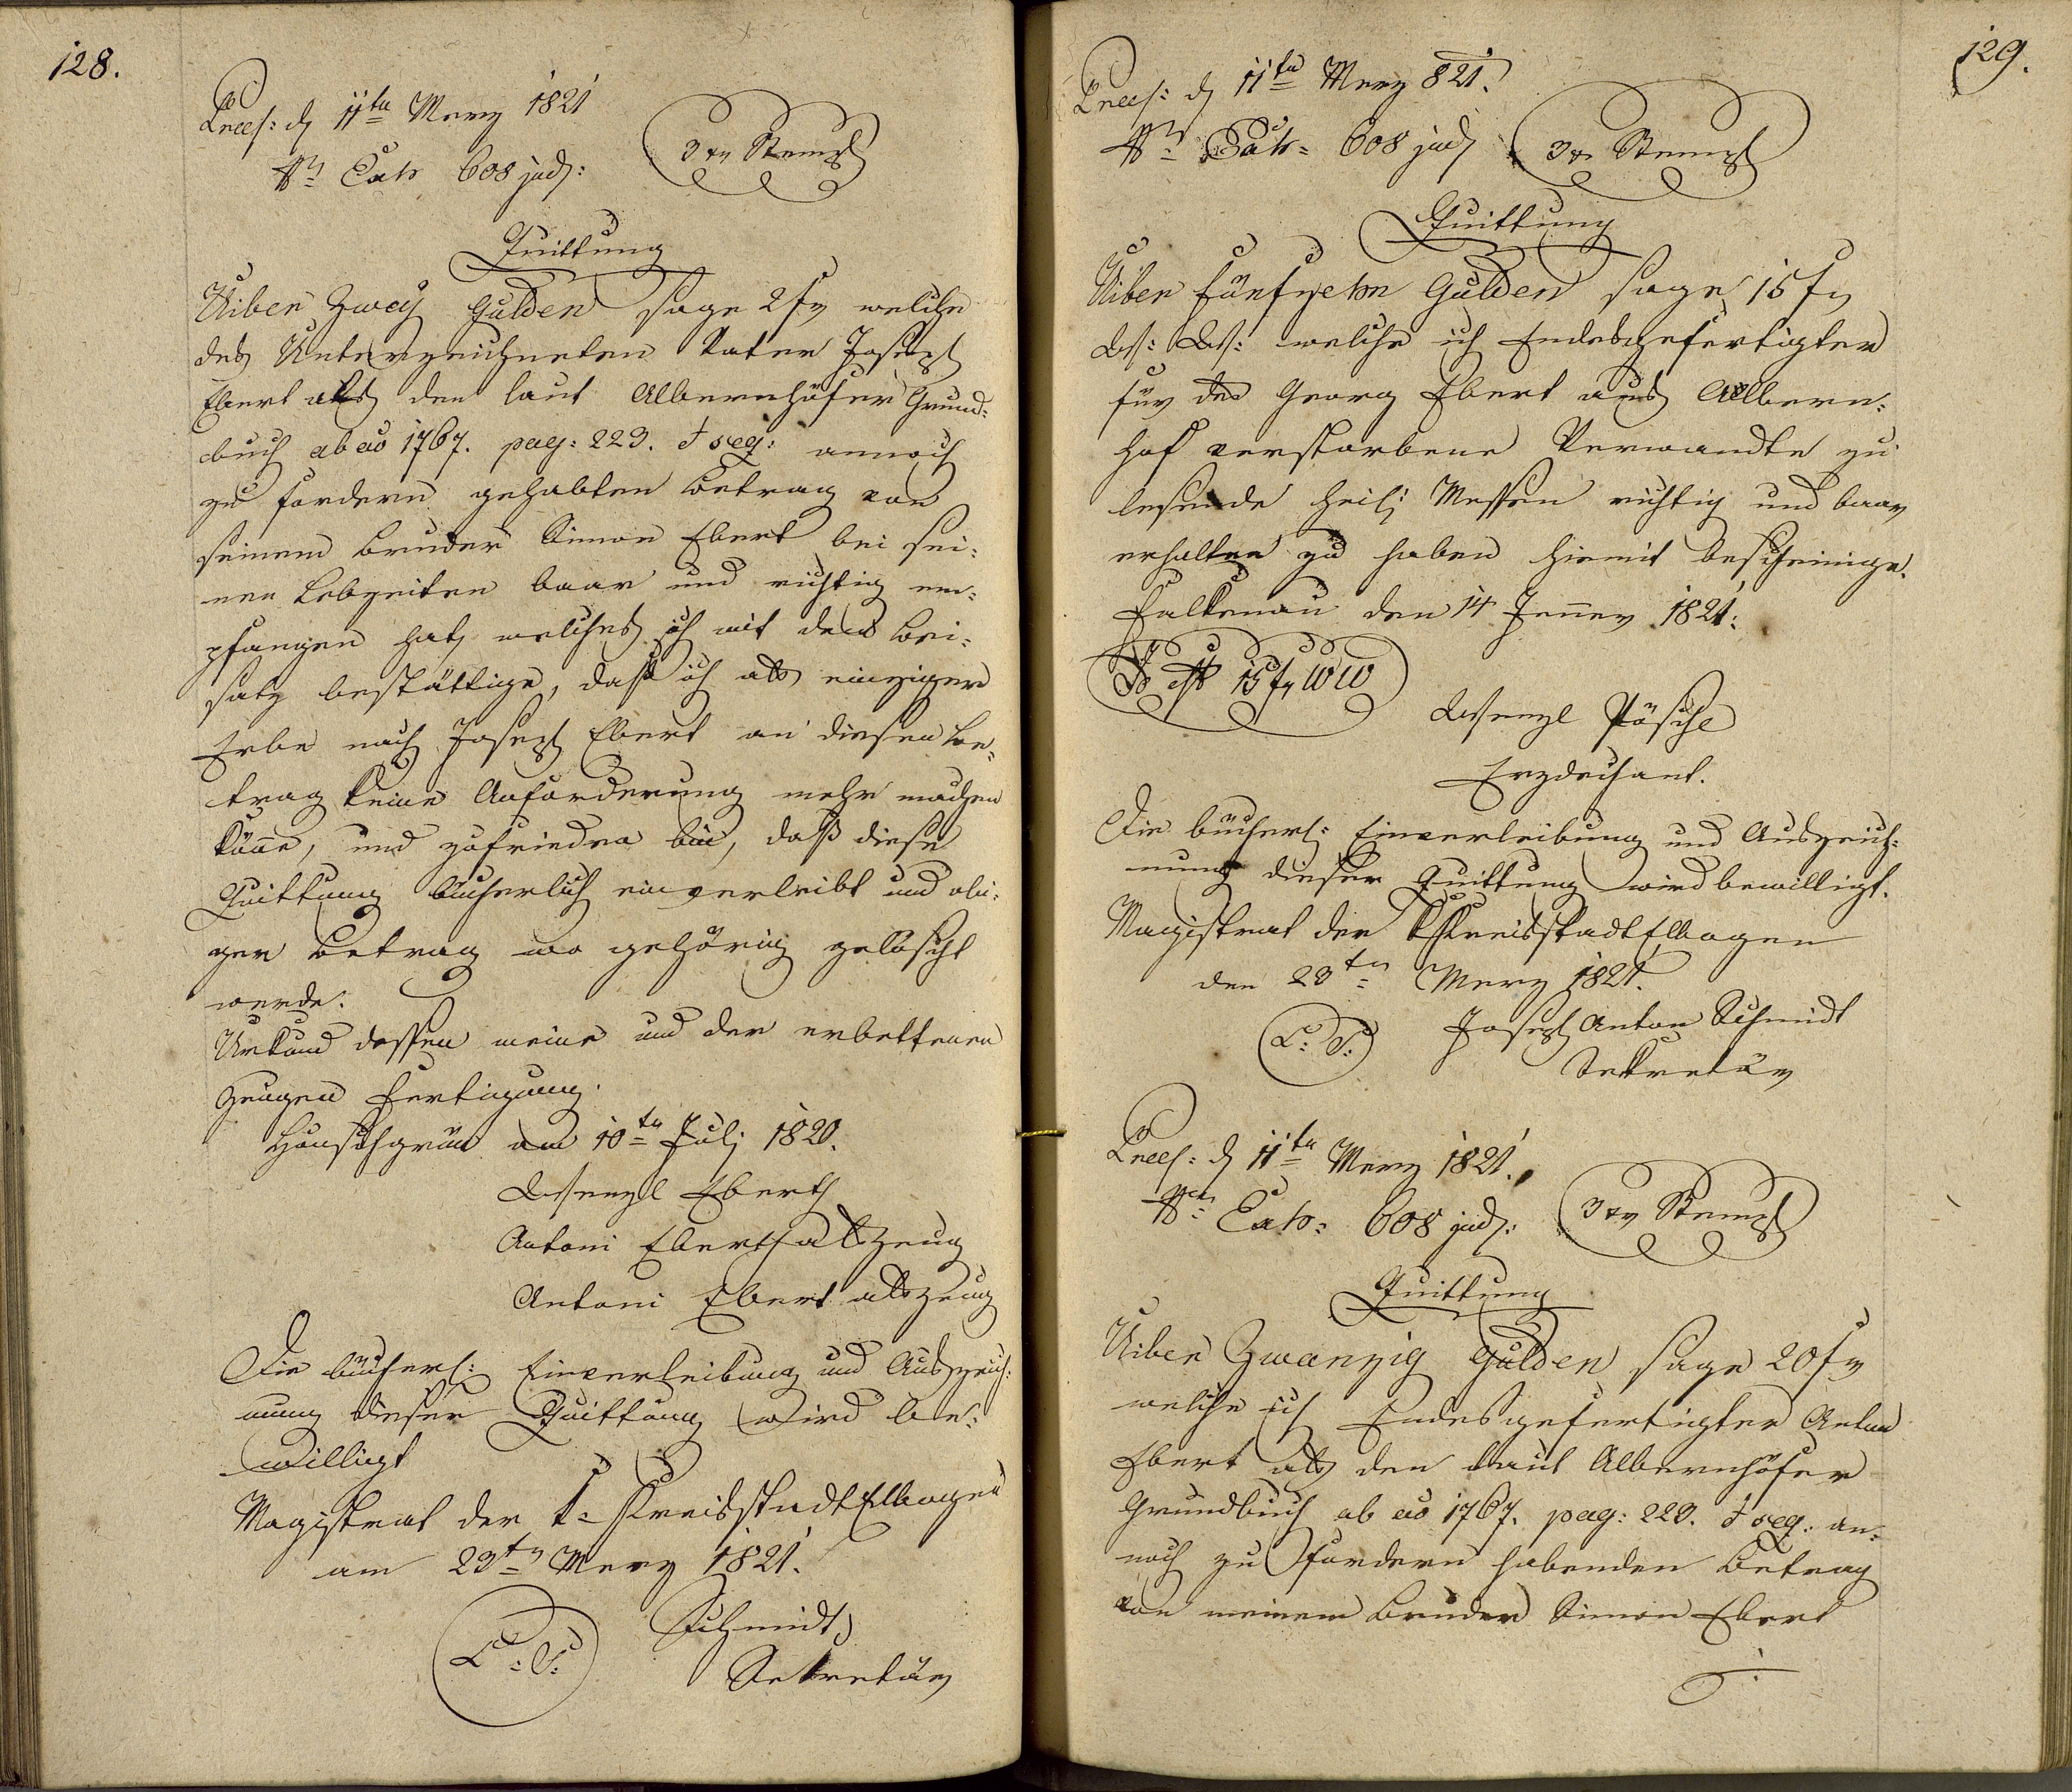 128.
Præs: d 11ten Merz 1821
Nro Exh 608 jud: 3 xr Stempl
Quittung
Uiber Zwey Gulden sage 2 fr welche
des Unterzeichneten Vater Joseph
Ebert als den laut Albernhöfer Grund-
buch ab ao 1767. pag: 223. et seq: annoch
zu fordern gehabten Betrag von
seinem Bruder Simon Ebert bei sei-
nen Lebzeiten baar und richtig em-
pfangen hat, welches ich mit dem Bei-
satz bestättige, daß ich als einziger
Erbe nach Joseph Ebert an diesen Be-
trag keine Anforderung mehr machen
könne, und zufrieden bin, daß diese
Quittung bücherlich einverleibt und obi-
ger Betrag wo gehörig gelöscht
werde.
Urkund dessen meine und der erbettenen
Zeugen Fertigung.
am 10ten Juli 1820.
Wenzl Eberth
Antoni Eberth als Zeug
Antoni Ebert als Zeug
Die bücherl: Einverleibung und Auszeich-
nung dieser Quittung wird be-
willigt
Magistrat der k: Kreisstadt Elbogen
am 23ten Merz 1821.
L: S: Schmidt
Sekretär
129.
Præs: d 11ten Merz 821.
Nro Exh: 608 jud 3 xr Stempl
Quittung
Uiber fünfzehn Gulden sage 15 fr
W: W: welche ich Endesgefertigter
für des Georg Ebert aus Albern-
hof verstorbene Verwandte zu
lesende heil: Messen richtig und baar
erhalten zu haben hiemit bescheinige.
Falkenau den 14 Jenner 1821.
Id est 15 fr WW
Wenzl Pösche
Erzdechant.
Die bücherl: Einverleibung und Auszeich-
nung dieser Quittung wird bewilligt.
Magistrat der k Kreisstadt Elbogen
den 23ten Merz 1821.
L: S: Joseph Anton Schmidt
Sekretär
Præs: d 11ten Merz 1821.
Nro Exh: 608 jud: 3 xr Stempl
Quittung
Uiber Zwanzig Gulden sage 20 fr
welche ich Endesgefertigter Anton
Ebert als den laut Albernhöfer
Grundbuch ab ao 1767. pag: 223. et seq: an-
noch zu fordern habenden Betrag
von meinem Bruder Simon Ebert